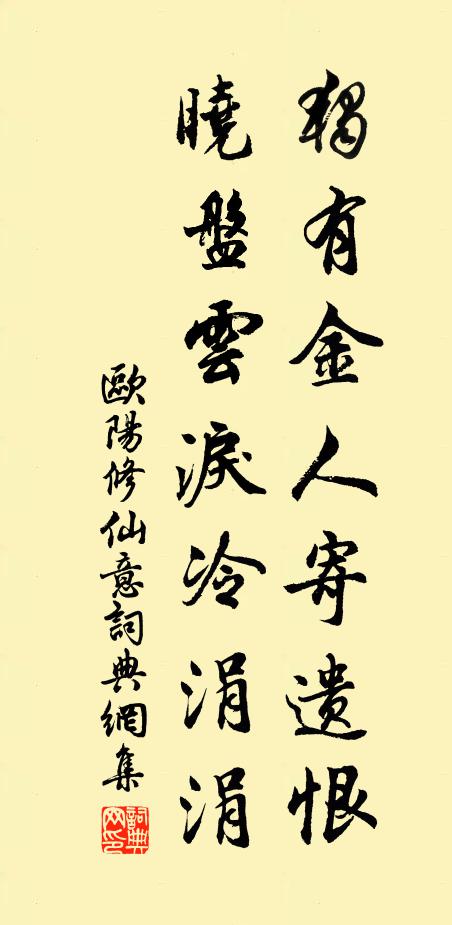 獨有金人寄遺恨
曉盤雲淚冷涓涓
歐陽修仙意詞典網集
詞典網印